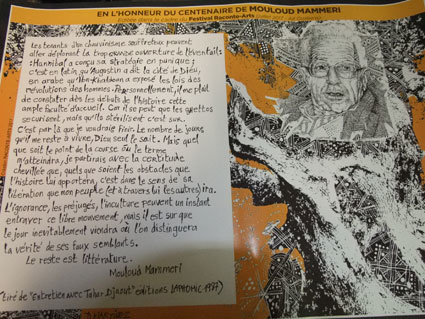 EN L'HONNEUR DU CENTENAIRE DE MOULOUD MAMMERI
Editée dans le cadre du Festival Raconte-Arts
Les tenants d'un chauvinisme souffreteux peuvent
aller déplorant la trop grande ouverture de l'éventail:
Hannibal a conçu sa stratégie en punique;
c'est en latin qu'Augustin a dit la cité de Dieu,
en arabe qu'Ibn-Khaldoun a exposé les lois des
révolutions des hommes. Personnellement, il me plait
de constater dès les débuts de l'histoire cette
ample faculté d'accueil. Car il se peut que les ghettos
sécurisent, mais qu'ils stérilisent c'est sur.
C'est par là que je voudrais finir. Le nombre de jours
qu'il me reste à vivre, Dieu seul le sait. Mais quel
que soit le point de la course où le terme
m'atteindra, je partirais avec la certitude
chevillée que, quels que soient les obstacles que
l'histoire lui apportera, c'est dans le sens de sa
libération que mon peuple (et à travers lui les autres) ira.
L'ignorance, les préjugés, l'inculture peuvent un instant
entraver ce libre mouvement, mais il est sur que
le jour inévitablement viendra où l'on distinguera
la vérité de ses faux semblants.
Le reste est littérature.
Mouloud Mammeri
(tiré de "Entretien avec Tahar Djaout" editions LAPHOMIC 1987)